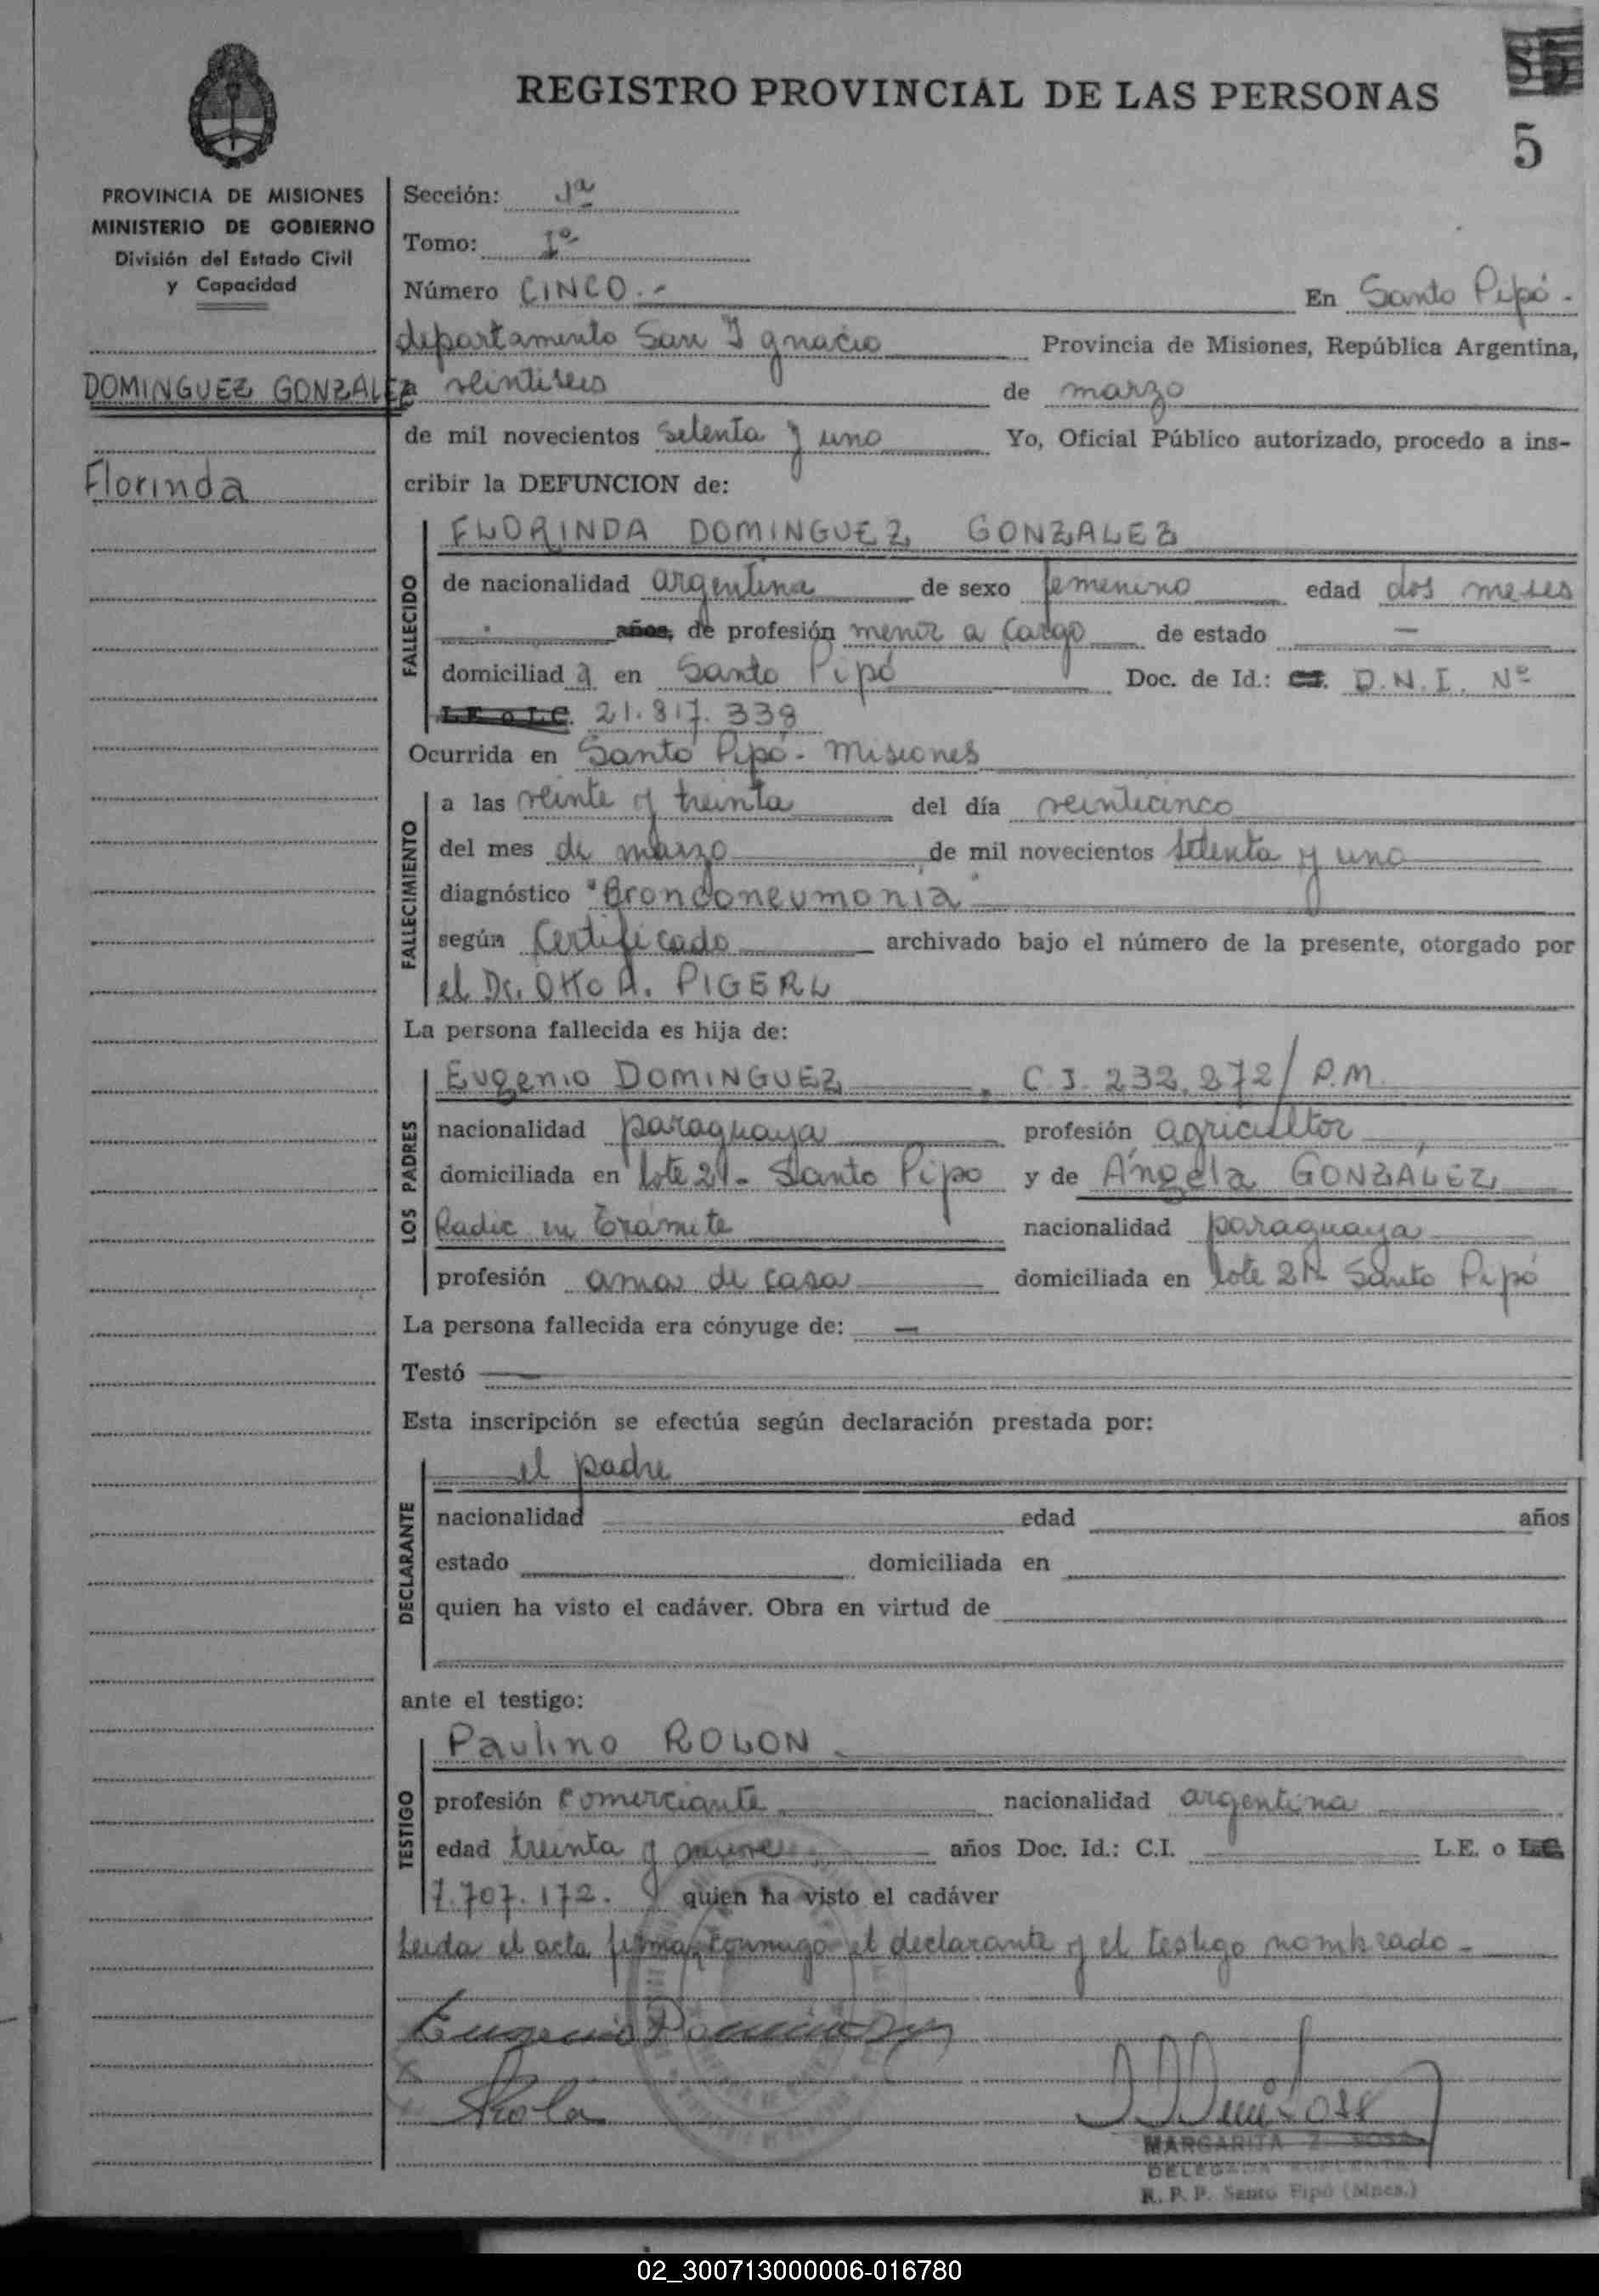 REGISTRO PROVINCIAL DE LAS PERSONAS
5
PROVINCIA DE MISIONES
MINISTERIO DE GOBIERNO
División del Estado Civil
y Capacidad
DOMINGUEZ GONZALEZ
Florinda
Sección: 1ª
Tomo: Iº
Número CINCO.- En Santo Pipó.-
departamento San Ignacio Provincia de Misiones, República Argentina,
a veintiseis de marzo
de mil novecientos setenta y uno Yo, Oficial Público autorizado, procedo a ins-
cribir la DEFUNCION de:
FALLECIDO
FLORINDA DOMINGUEZ GONZALEZ
de nacionalidad argentina de sexo femenino edad dos meses
años, de profesión menor a cargo de estado —
domiciliad a en Santo Pipó Doc. de Id.: C.I. D.N.I. Nº
L.E. o L.C. 21.817.339
Ocurrida en Santo Pipó - Misiones
FALLECIMIENTO
a las veinte y treinta del día veinticinco
del mes de marzo de mil novecientos setenta y uno
diagnóstico "Bronconeumonia"
según Certificado archivado bajo el número de la presente, otorgado por
el Dr. Otto A. PIGERL
La persona fallecida es hija de:
LOS PADRES
Eugenio DOMINGUEZ, C.I. 232.272/P.M.
nacionalidad paraguaya profesión agricultor,
domiciliada en lote 21- Santo Pipó y de Angela GONZALEZ,
Radic en trámite nacionalidad paraguaya
profesión ama de casa domiciliada en lote 21- Santo Pipó
La persona fallecida era cónyuge de: —
Testó —
Esta inscripción se efectúa según declaración prestada por:
DECLARANTE
el padre
nacionalidad edad años
estado domiciliada en
quien ha visto el cadáver. Obra en virtud de
ante el testigo:
TESTIGO
Paulino ROLON
profesión comerciante nacionalidad argentina
edad treinta y nueve años Doc. Id.: C.I. L.E. o L.C.
7.707.172. quien ha visto el cadáver
Leida el acta firma conmigo el declarante y el testigo nombrado -
Eugenio Dominguez
MARGARITA Z. SOSA
DELEGADA SUPLENTE
R. P. P. Santo Pipó (Mnes.)
02_300713000006-016780